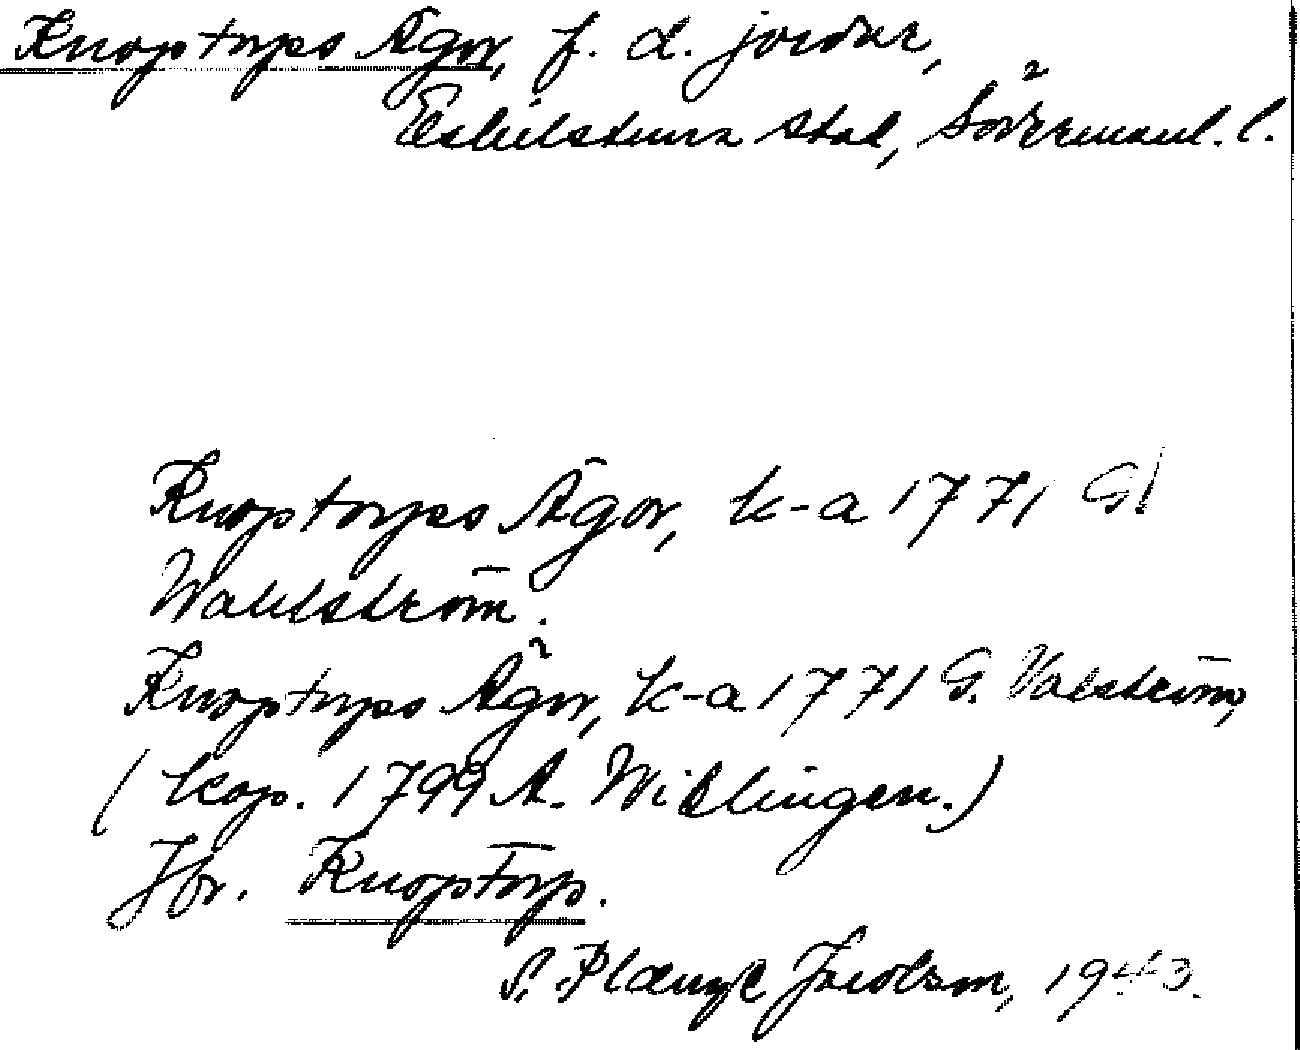 Knoptorps Ägor, f. d. jordar,
Eskilstuna stad, Södermanl. l.
Knoptorps Ägor, k-a 1771 G!
Wahlström.
Knoptorps Ägor, k-a 1771 G. Valström,
(kop. 1799 A. Widlingen.)
Jfr. Knoptorp.
S. Plænge Jacobson, 1943.